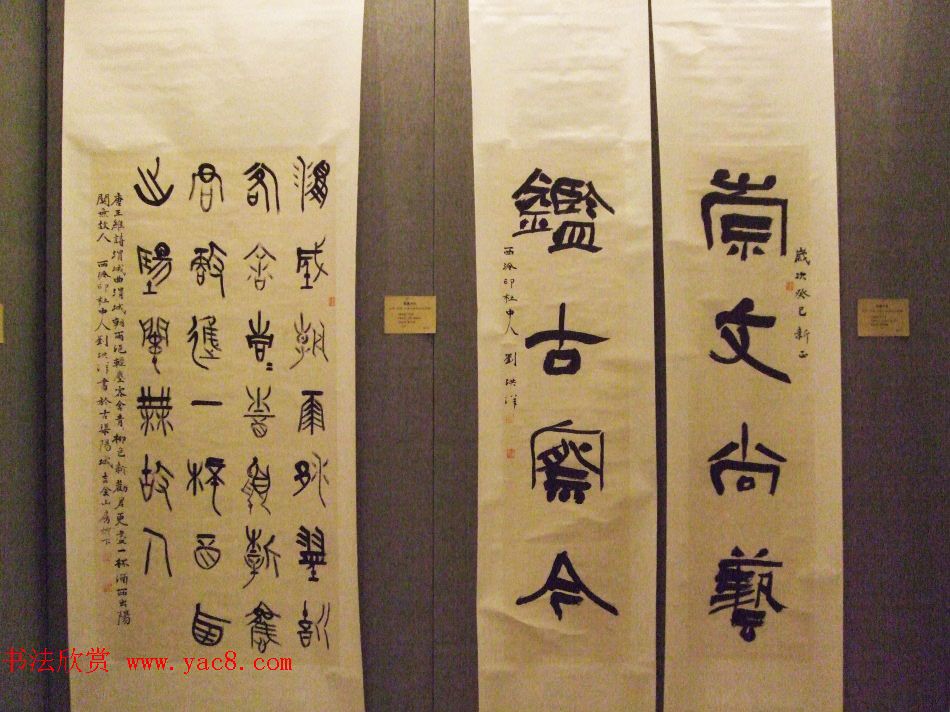 崇文尚藝
歲次癸巳新正
鑑古察今
西泠印社中人劉洪洋
渭城朝雨浥輕塵
客舍青青柳色新勸
君更進一杯酒西
出陽關無故人
唐王維詩渭城曲渭城朝雨浥輕塵客舍青青柳色新勸君更盡一杯酒西出陽
關無故人 西泠印社中人劉洪洋書於古渠陽城吉金山房
书法欣赏 www.yac8.com